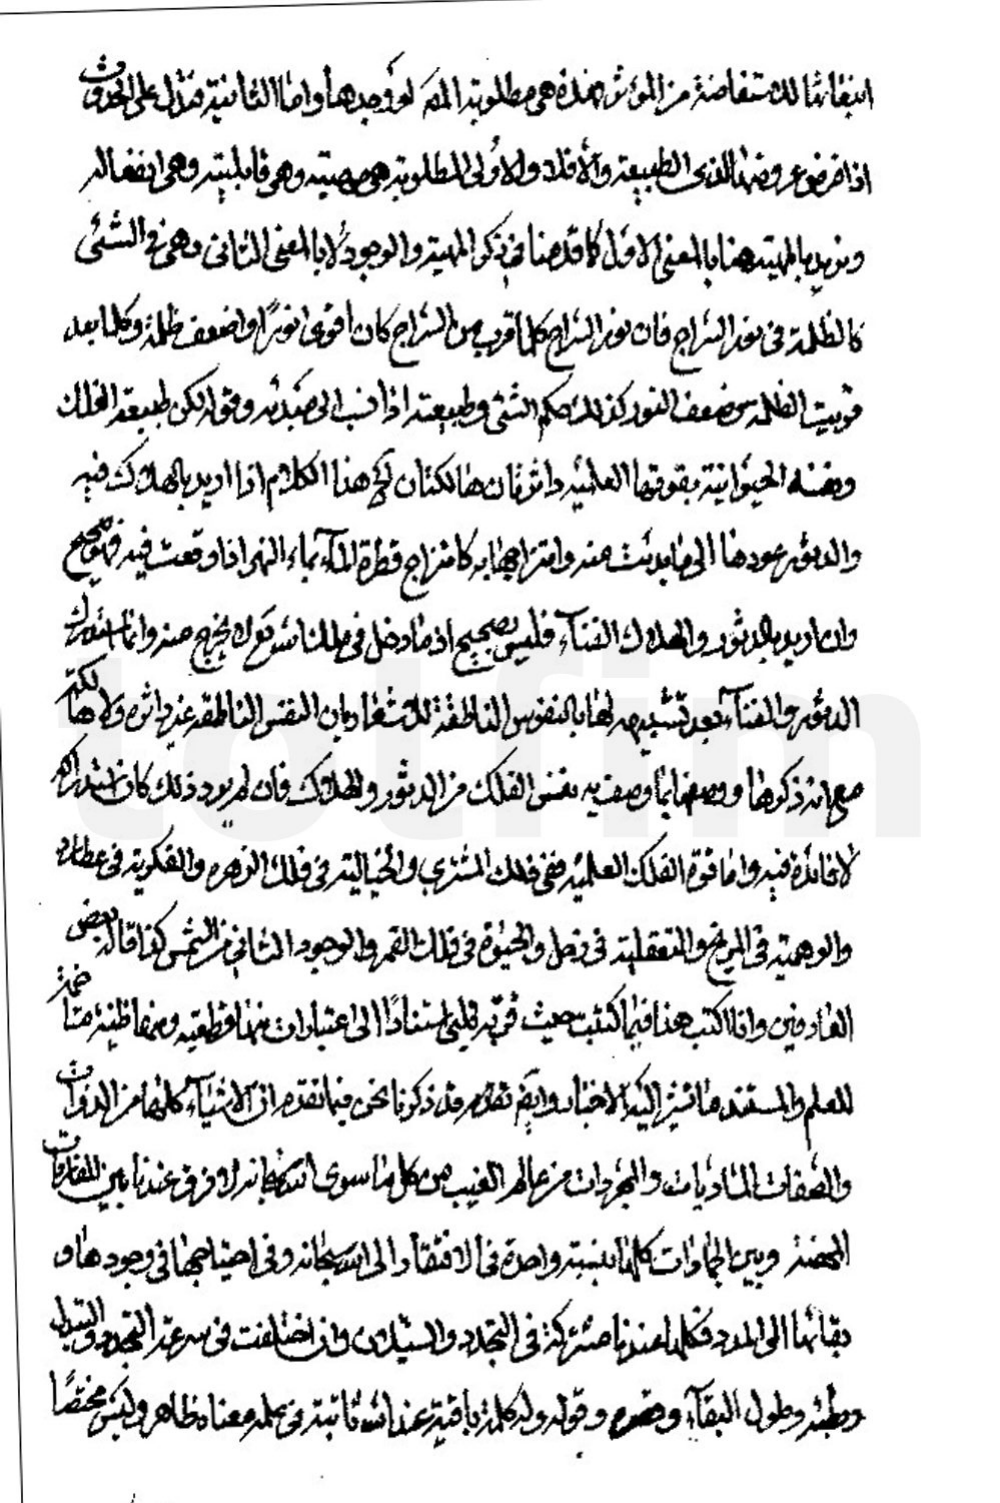 انبغائها للاستفاضة من المؤثر فهذه هي مطلوبته المهية لو وجدها واما الثانية فتدل على الحدوث
اذا فرض عروضها لذى الطبيعة والافلا والاولى المطلوبة هي مهيته وهي قابليته وهي انفعاله
ونريد بالمهية هنا بالمعنى الاول كما قدمنا في ذكر المهية والوجود لا بالمعنى الثانى وهى في الشئى
كالظلمة فى نور السراج فان نور السراج كلما قرب من السراج كان اقوى نورًا واضعف ظلمة وكلما بعد
قويت الظلمة وضعف النور كذلك حكم الشئ وطبيعته اذا نسب الى مبدئه وقوله لكن طبيعة الفلك
ونفسه الحيوانية بقوتها العلمية داثرتان هالكتان الخ هذا الكلام اذا اريد بالهلاك فيه
والدثور عودها الى ما بدئت منه وامتزاجها به كامتزاج قطرة الماء بماء النهر اذا وقعت فيه فهو صحيح
وان اريد بالدثور والهلاك الفنآء فليس بصحيح اذ ما دخل فى ملك الله لا يخرج منه وانما استدرك
الدثور والفنآء بعد تشبيهه لها بالنفوس الناطقة للاشعار بان النفس الناطقة غير داثرة ولا هالكة
مع انه ذكرها ووصفها بما وصف به نفس الفلك من الدثور والهلاك فان لم يرد ذلك كان استدراكه
لا فائدة فيه واما قوة الفلك العلمية ففى فلك المشترى والخيالية فى فلك الزهره والفكرية فى عطارد
والوهمية فى المريخ والتعقلية فى زحل والحيوة فى فلك القمر والوجود الثانى من الشمس كذا قال بعض
العارفين وانا اكتب هذا فيما كتبت حيث قوته قلبى استنادًا الى اعتبارات منها قطعية ومنها ظنية متاخمة
للعلم والمستند ما تشير اليه الاخبار وايضم تقدم قد ذكرنا نحن فيما تقدم ان الاشيآء كلها من الذوات
والصفات الماديات والمجردات من عالم الغيب من كل ما سوى الله سبحانه لا فرق عندنا بين المفارقات
المحضة وبين الجمادات كلها بنسبة واحدة فى الافتقار الى الله سبحانه وفى احتياجها فى وجودها و
بقائها الى المدد فكلها عندنا مشتركة فى التجدد والسيلان وان اختلفت فى سرعة التجدد والتبدل
وبطئه وطول البقآء وقصره وقوله وله كلمة باقية عند الله ثابتة فى علمه معناه ظاهر وليس مختصًا